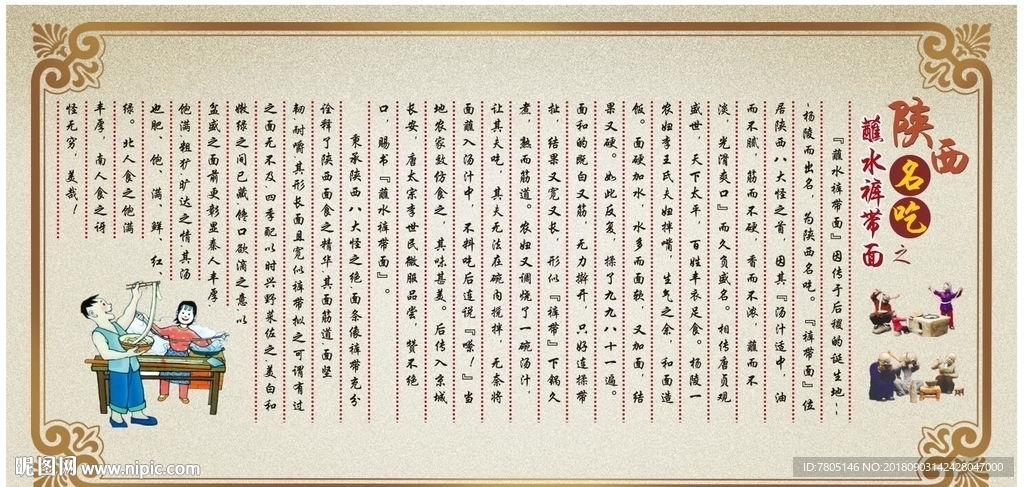 陕西
名吃
之
蘸水裤带面
『蘸水裤带面』因传于后稷的诞生地--
-杨陵而出名，为陕西名吃。『裤带面』位
居陕西八大怪之首，因其『汤汁适中，油
而不腻，筋而不硬，香而不浓，蘸而不
淡，光滑爽口』而久负盛名。相传唐贞观
盛世，天下太平，百姓丰衣足食。杨陵一
农妇李王氏夫妇拌嘴，生气之余，和面造
饭。面硬加水，水多而面软，又加面，结
果又硬。如此反复，揉了九九八十一遍。
面和的既白又筋，无力擀开，只好连揉带
扯，结果又宽又长，形似『裤带』下锅久
煮，熟而筋道。农妇又调烧了一碗汤汁，
让其夫吃，其夫无法在碗内搅拌，无奈将
面蘸入汤汁中，不料吃后连说『嘹！』当
地农家效仿食之，其味甚美。后传入京城
长安，唐太宗李世民微服品尝，赞不绝
口，赐书『蘸水裤带面』。
秉承陕西八大怪之绝.面条像裤带充分
诠释了陕西面食之精华.其面筋道.面坚
韧.耐嚼.其形长面且宽似裤带拟之可谓有过
之面无不及.四季配以时兴野菜佐之.美白和
嫩绿之间已藏馋口欲滴之意.以
盆盛之面前更彰显秦人丰厚
饱满.粗犷旷达之情.其汤
也肥、饱、满、鲜、红、
绿。北人食之饱满
丰厚，南人食之讶
怪无穷，美哉！
昵图网 www.nipic.com
ID:7805146 NO:20180903142428047000